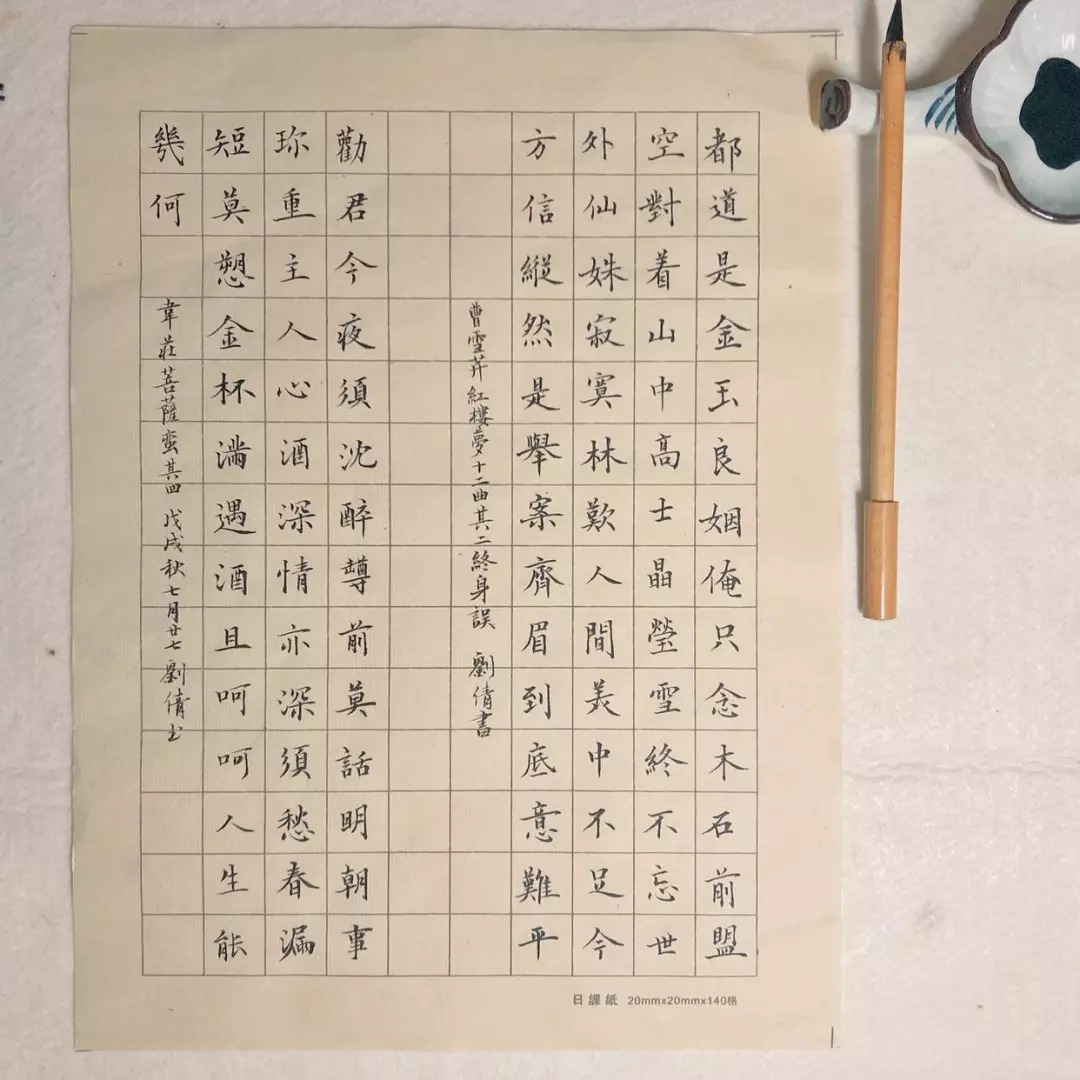 都道是金玉良姻俺只念木石前盟
空對着山中高士晶瑩雪終不忘世
外仙姝寂寞林歎人間美中不足今
方信縱然是舉案齊眉到底意難平
曹雪芹紅樓夢十二曲其二終身誤 劉倩書
勸君今夜須沈醉罇前莫話明朝事
珎重主人心酒深情亦深須愁春漏
短莫愬金杯滿遇酒且呵呵人生能
幾何
韋莊菩薩蛮其四 戊戌秋七月廿七 劉倩书
日課紙 20mmx20mmx140格